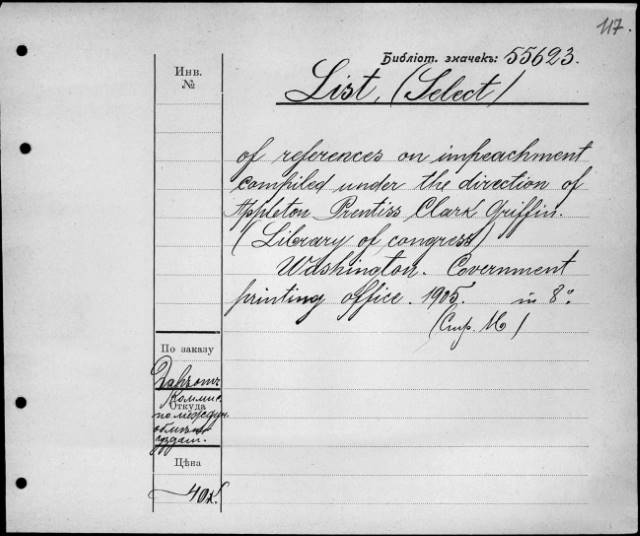 117.
Библіот. значекъ: 55623.
Инв.
№
List, (Select)
of references on impeachment
compiled under the direction of
Appleton Prentiss Clark Griffin.
(Library of congress)
Washington. Government
printing office. 1905. in 8°.
По заказу
Откуда
Коммис.
по междун.
обмѣну
издан.
Цѣна
40к.